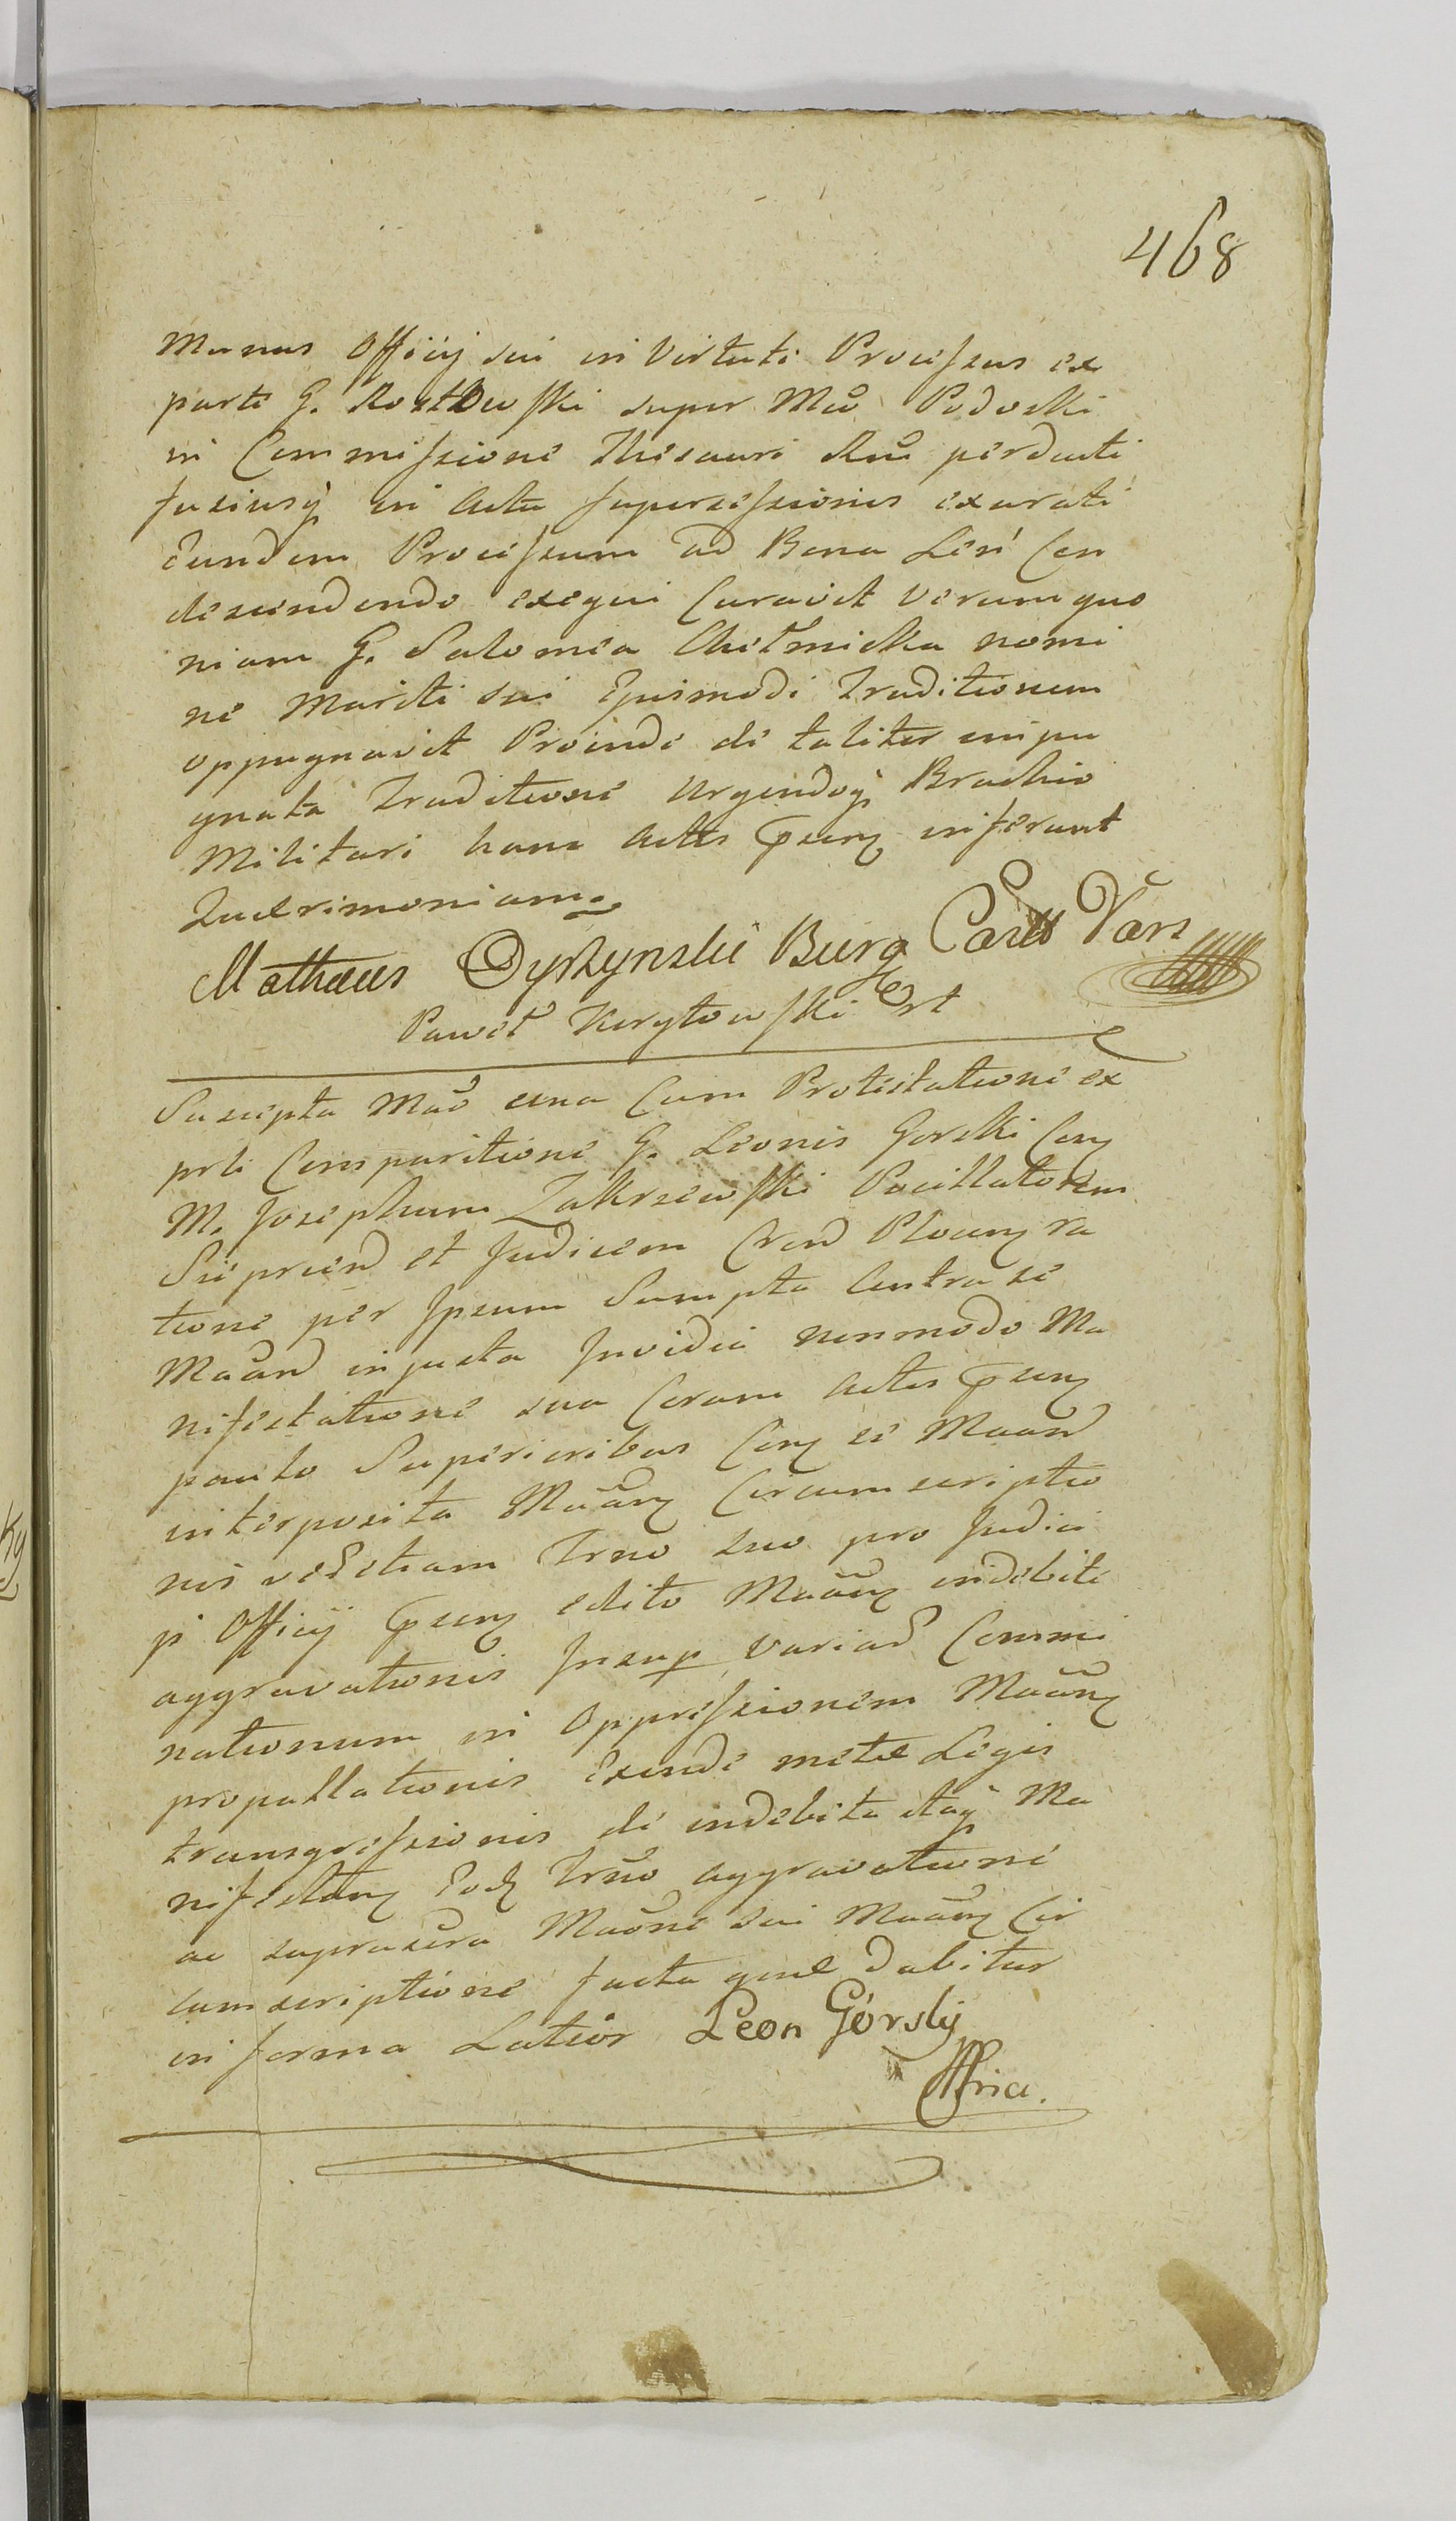 468
Munus Officij sui in Virtute Processus ex
parte G. Rostkowski super Mco Podoski
in Commissione Thesauri Rni perducti
fusiusq in Actu supercessionis exarati
eundem Processum ad Bona Len Con
descendendo exequi Curavit verum quo
niam G. Salomea Chełmicka nomi
ne Mariti sui Ejusmodi Traditionem
oppugnavit Proinde de taliter impu
gnata Traditione Urgendoq Brachio
Militari hanc Actis pseng inferunt
Querimoniam
Mathaeus Dyszynski Burg Varz
Paweł Kurytowski
Suscepta Mao una Cum Protestatione ex
prli Comparitione G. Leonis Gorski Con
M. Josephum Zakrzewski Pocillatorem
et Judicem Plocens ra
tione per Ipsum Sumpta Contra se
Maand injusta Invidia nonmodo Ma
nifestatione sua Coram Actis pseng
paulo Superioribus Con se Maand
interposita Maang Circumscriptio
nis etiam Trno suo pro Judici
js Officij pseng edito Maang indebite
aggravationis Insup variar Commi
nationum in Oppressionem Maang
propallationis Exinde metae Legis
transgressionis de indebita itaq Ma
nifestang Eod Trno aggravatione
ac suprascra Maone sui Maang Cir
cumscriptione facta quae dabitur
in forma Latior Leon Górsky